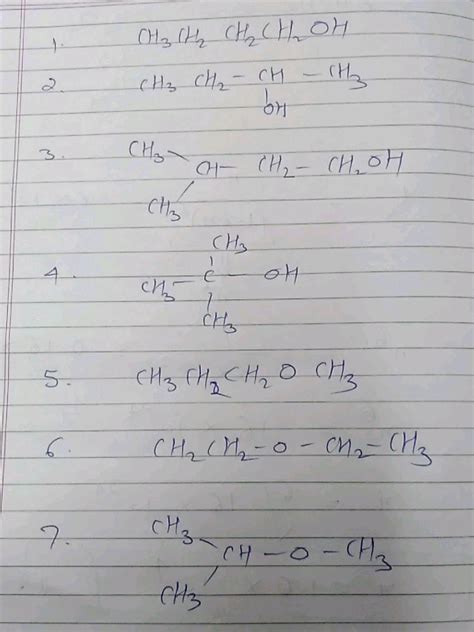 1. CH3CH2 CH2CH2OH
2. CH3 CH2-CH-CH3
OH
3. CH3
CH-CH2-CH2OH
CH3
CH3
4. CH3-C-OH
CH3
5. CH3CH2CH2OCH3
6. CH2CH2-O-CH2-CH3
7. CH3
CH-O-CH3
CH3